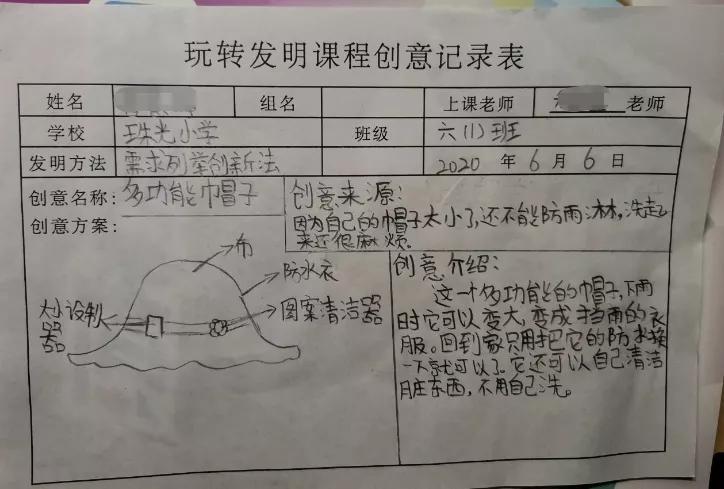 玩转发明课程创意记录表
姓名 组名 上课老师 老师
学校 珠光小学 班级 六(1)班
发明方法 需求列举创新法 2020 年 6 月 6 日
创意名称: 多功能巾帽子
创意方案:
布
防水衣
大小设制
器器
图案清洁器
创意来源:
因为自己的巾帽子太小了,还不能防雨淋,洗起
来还很麻烦。
创意介绍:
这一个多功能的巾帽子,下雨
时它可以变大,变成挡雨的衣
服。回到家只用把它的防水换
一下就可以了。它还可以自己清洁
脏东西,不用自己洗。